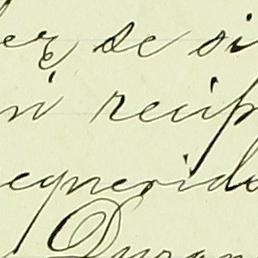 se si
n recip
equerido
Duran